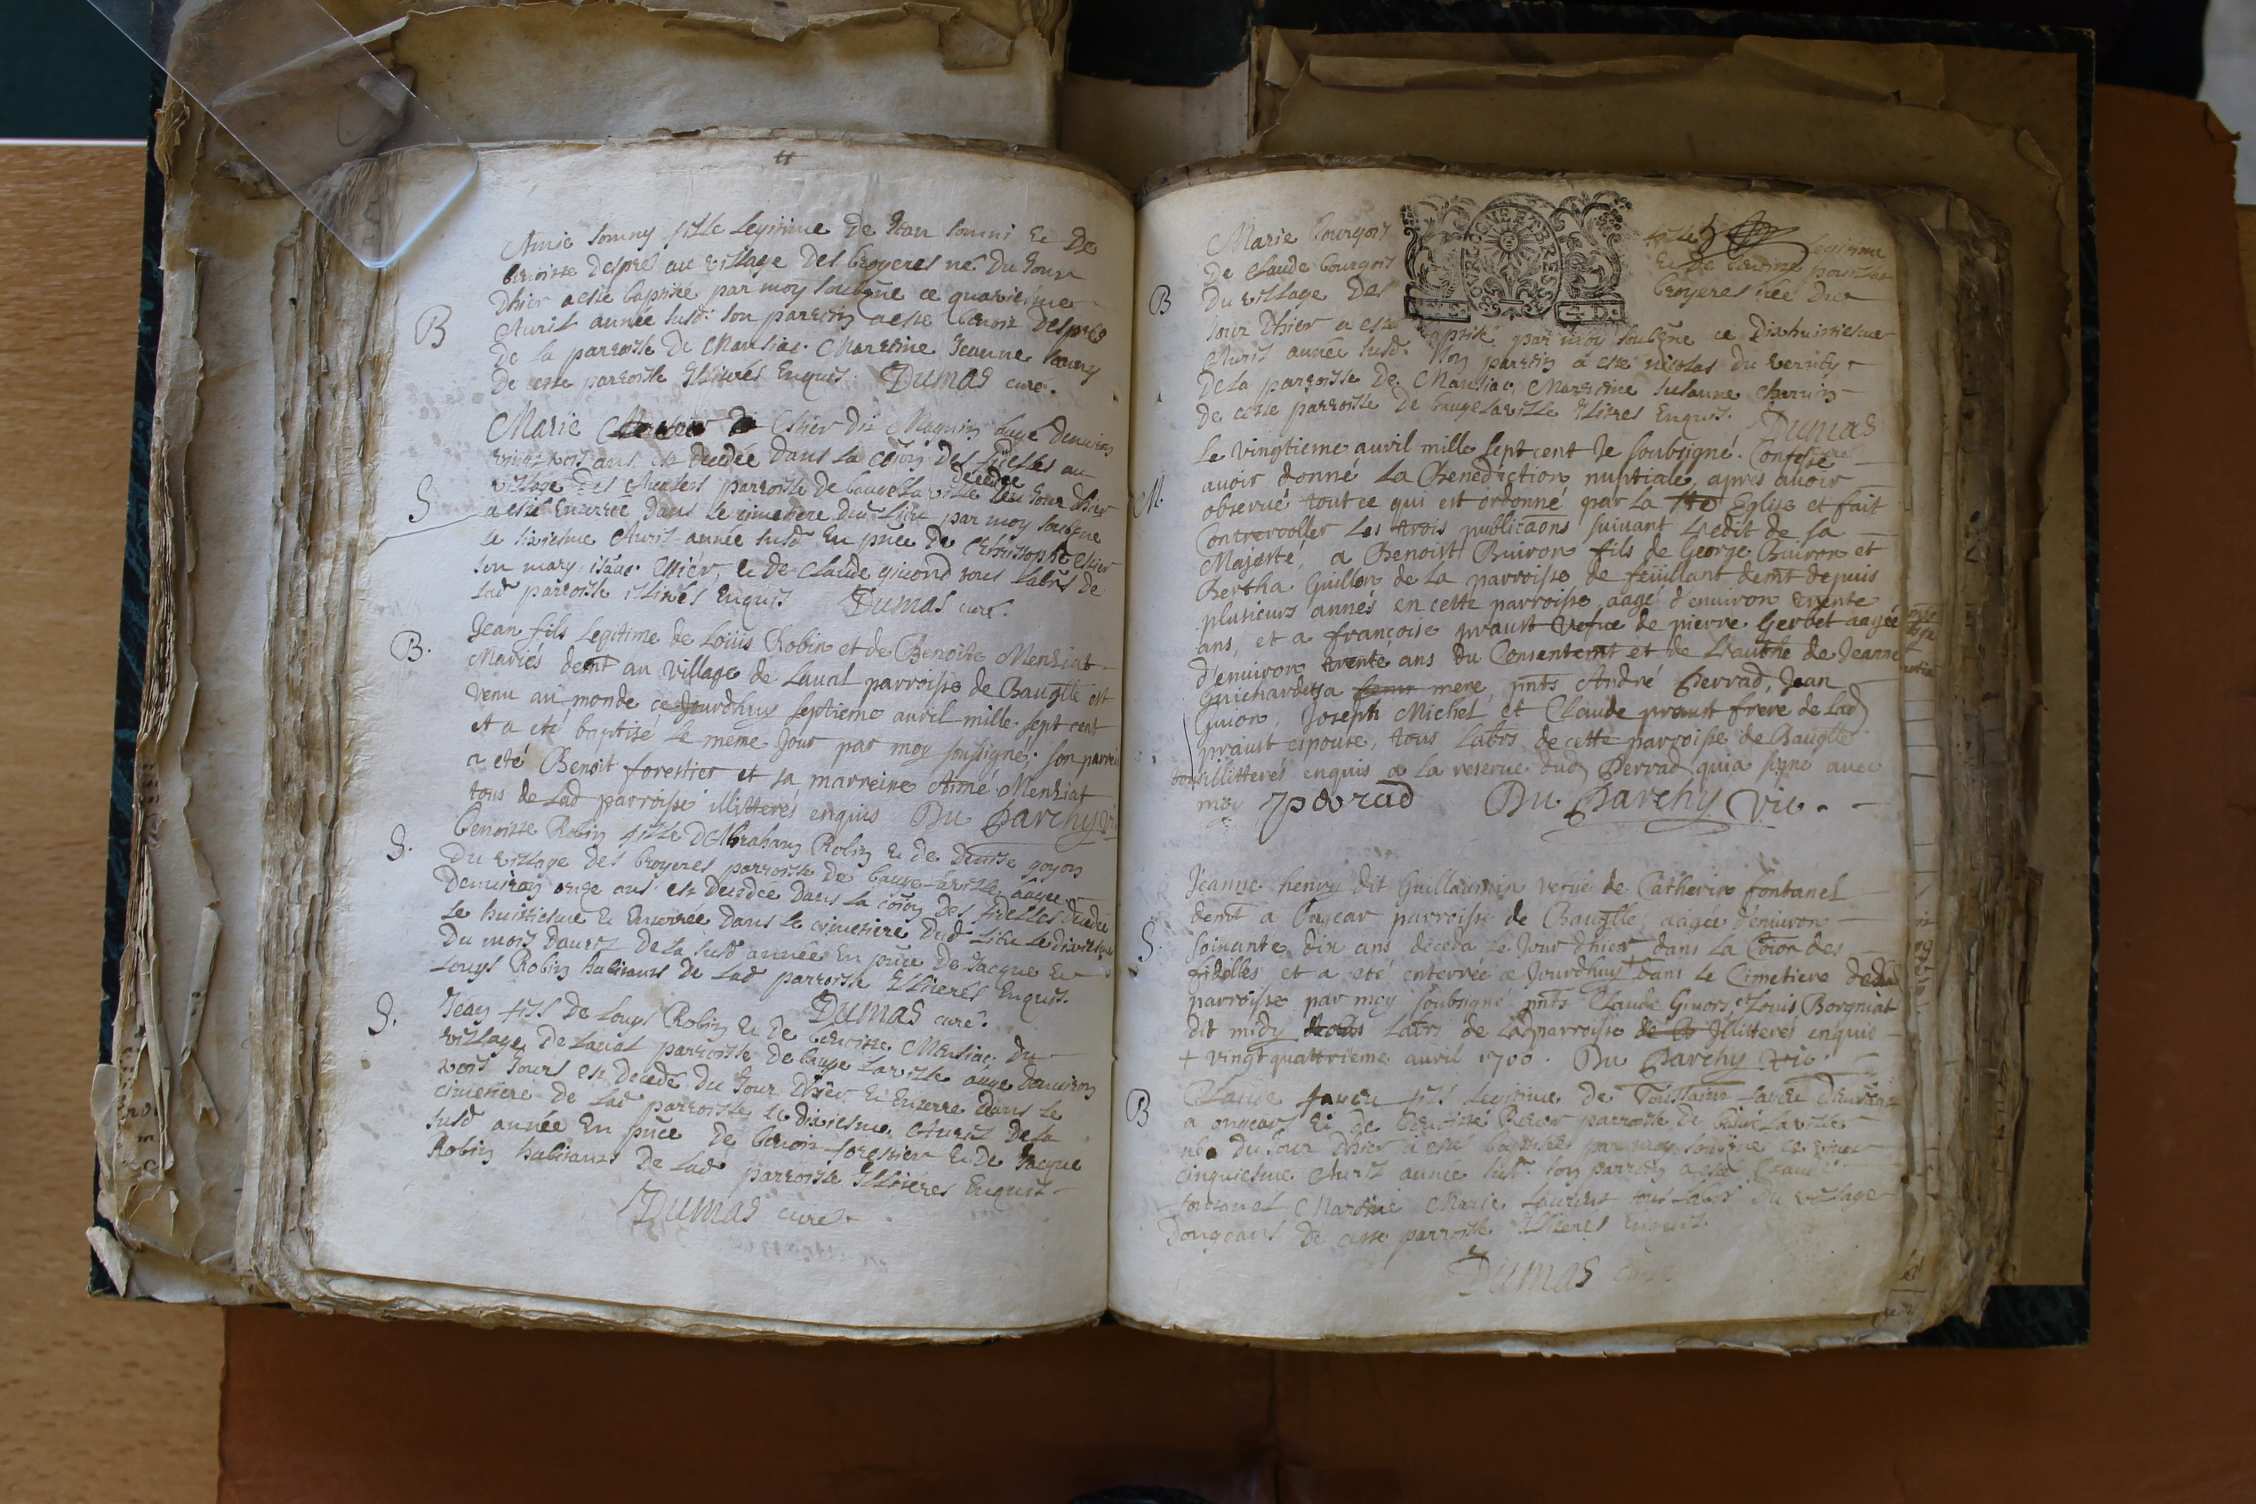 Amie Sonny fille Legitime de Jean Sonni Et De
benoitte despré au village des broyeres né Du Jour
Dhier a esté baptisé par moy soubsigné ce quatrieme
B
Avril année susd. Son parrein a esté benoit despres
De la parroisse De Mansiac. Marreine Jeanne Sonny
De cette parroisse Illitres Enquis. Dumas curé.
Marie Chier Dit Magnin aagé denviron
vingt trois ans est decedée Dans La Coion Des fidelles au
village Des parroisse de bauge La ville decedee Jour dhier
S
a esté Enterrée Dans Le cimetiere Dud Lieu par moy soubsigné
le sixiesme Avril année susd En pnce De Christophle Chier
son mary, isaac Chier, Et de Claude givord tous Labrs de
Lad parroisse illitrés Enquis Dumas curé.
Jean fils Legitime de Loüis Robin et de Benoite Menziat
B.
Mariés demt au Village de Laval parroisse de Baugllle est
venu au monde ce Jourdhuy septieme avril mille sept cent
et a eté baptisé Le même Jour par moy soussigné. Son parrein
a eté Benoit forestier et sa marreine Aimé Menziat
tous de Lad parroisse illitterés enquis Du Parchy Vi
Benoitte Robin fille DAbraham Robin Et de Denise goyon
S.
Du village des broyeres parroisse de bauge La ville aagée
Denviron onze ans est Decedée Dans La coion Des fidelles decedée
Le huittiesme Et Enterrée Dans Le cimetiere Dud Lieu Le dixiesme
Du mois Davril De La susd année En pnce De Jacque Et
Louys Robin habitants De Lad parroisse Illiterés Enquis.
Dumas curé.
S.
Jean fils De Louys Robin Et De benoitte Mensiac Du
village De Laval parroisse de bauge La ville aagé Denviron
trois Jours est Decedé Du Jour Dhier Et Enterré Dans Le
cimetiere De Lad parroisse Le dixiesme Avril De La
susd année En pnce De benoit forestier Et De Jacque
Robin habitants De Lad parroisse Illiterés Enquis
Dumas curé.
Marie bourgois fille legitime
De Claude bourgois Et De benoitte
B
Du village Des broyeres née Du
Jour Dhier a esté baptisé par moy soubsigné ce Dixhuittiesme
Avril année susd. Son parrein a esté nicolas du vernay
De La parroisse De Mansiac, Marreine Susanne
De cette parroisse De bauge La ville Illitres Enquis. Dumas
Le vingtieme avril mille sept cent Je soubsigné. Confesse
avoir donné La Benediction nuptiale, apres avoir
M.
observué tout ce qui est ordonné par La Ste Eglise et fait
Contreroller Les trois publicaons suivant L'edit de sa
Majesté, a Benoist Buiron fils de George Buiron et
Bertha Guillon de La parroisse de feüillant demt depuis
plusieurs annés en cette parroisse, aagé d'environ trente
ans, et a françoise praust Vefve de pierre Gerbet aagée
d'environ trente ans du Consentemt et de L'authé de Jeanne
Guichardet sa mere, pnts André Perrad, Jean
Guion, Joseph Michel et Claude praust frere de Lad
praust espouse, tous Labrs de cette parroisse de Baugllle
tous illitterés enquis a La reserve dud Perrad qui a signé avec
moy A perrad Du Parchy Vic.
Jeanne henry dit Guillaumin vefue de Catherin fontanel
demt a Ongear parroisse de Baugllle, aagée d'environ
S.
soixante dix ans deceda Le Jour dhier dans La Coion des
fidelles et a eté enterrée ce Jourdhuy + dans Le Cimetiere de
parroisse par moy soubsigné pnts Claude Givors, Louis Borgniat
dit midy Labrs de Lad parroisse Illitterés enquis
+ vingtquatrieme avril 1700. Du Parchy Vic.
B
Claude favre fils Legitime De Toussaint favre
a ongears Et De benoitte parroisse De baugé La ville
né Du Jour Dhier a esté baptisé par moy soubsigné ce vingt
cinquiesme Avril année susd. Son parrein a esté Claude
fontanel Marreine Marie Laurent tous Labrs Du village
Dongears De cette parroisse Illiterés Enquis.
Dumas curé